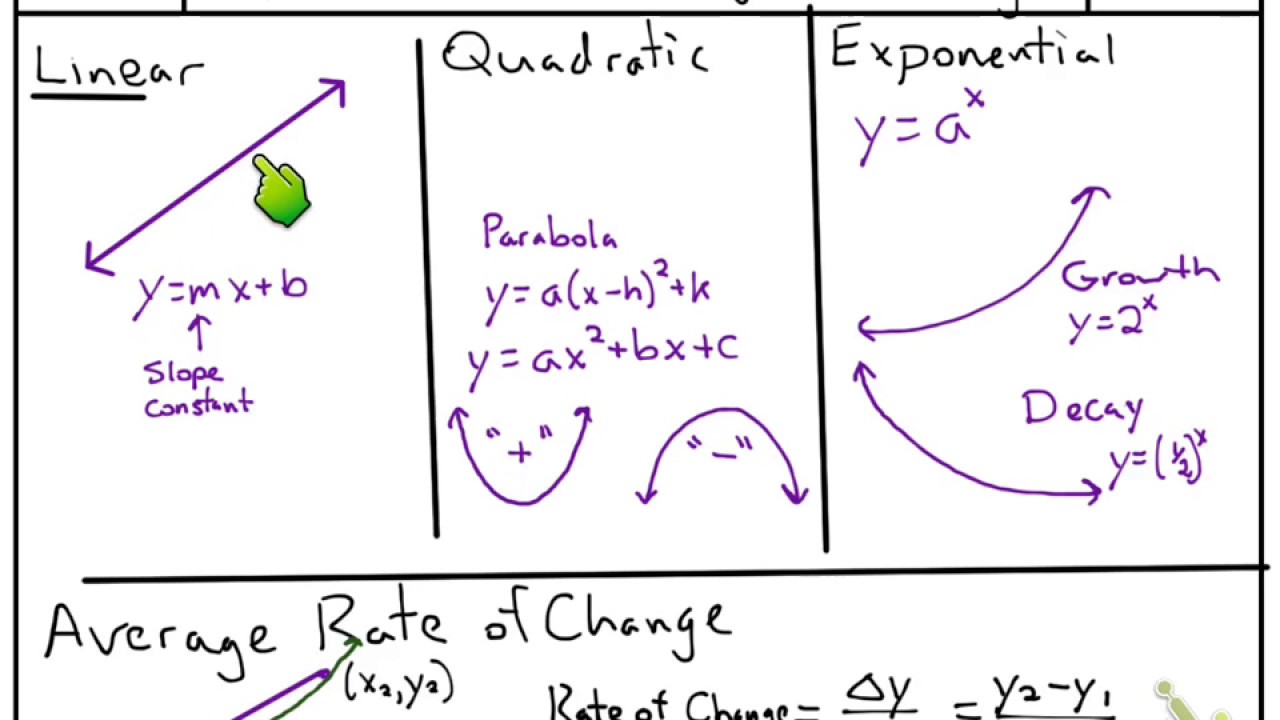 Linear
y=mx+b
Slope
constant
Quadratic
Parabola
y=a(x-h)²+k
y=ax²+bx+c
"+" "-"
Exponential
y=aˣ
Growth
y=2ˣ
Decay
y=(½)ˣ
Average Rate of Change
(x₂,y₂)
Rate of Change = Δy = y₂-y₁